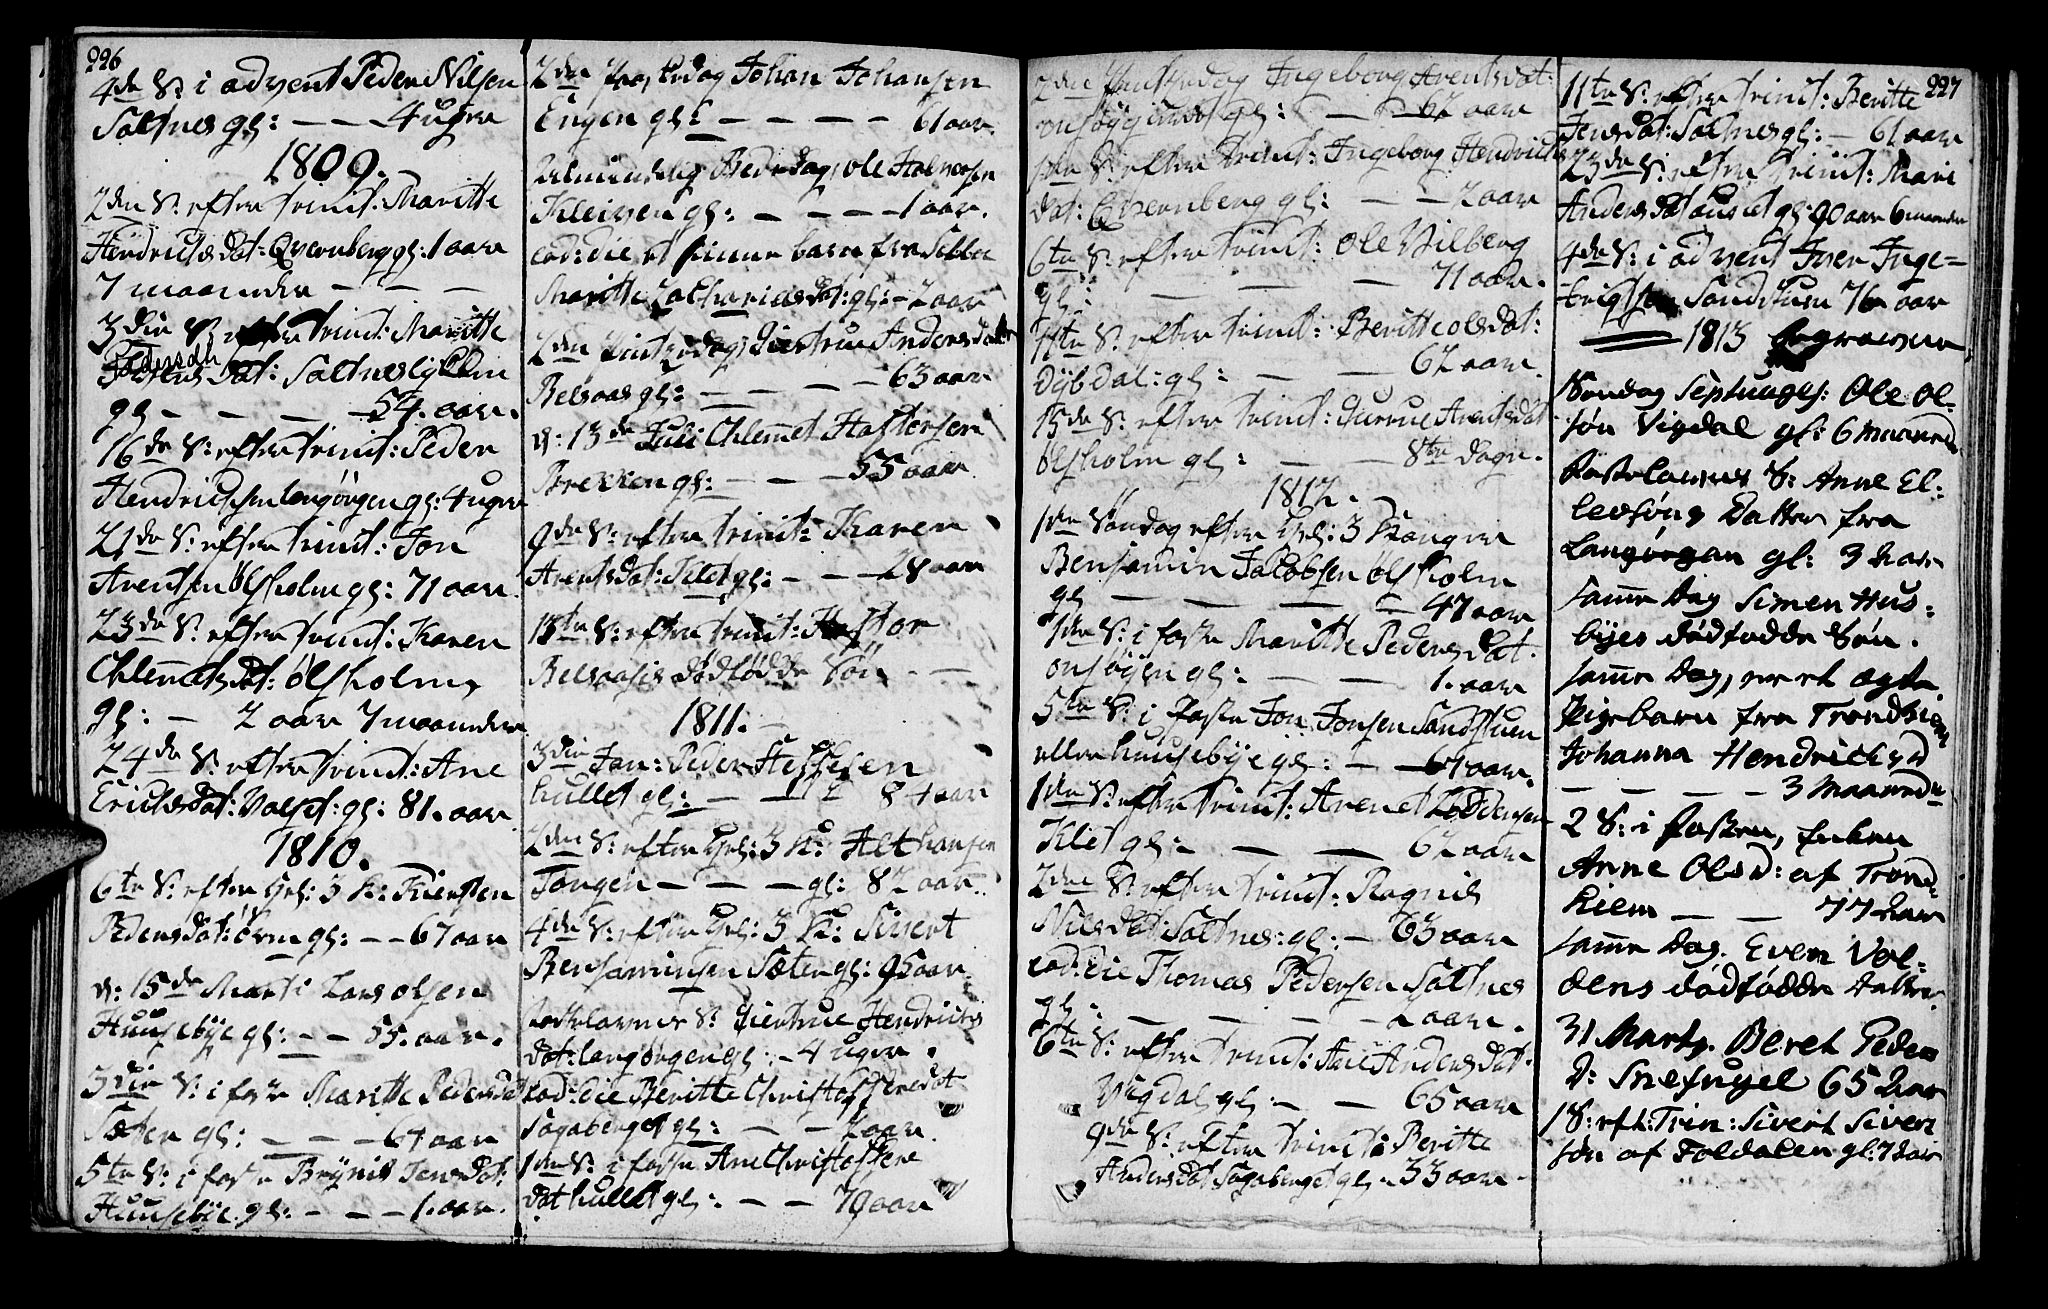 226
4de S: i advent Peder Nilsen
Saltnes gl: — — 4 uger
1809.
2den S: efter trinit: Maritte
Hendrichsdat: Qvernberg gl: 1 aar
7 maaneder — — —
3die S: efter trinit: Maritte
Pedersdtr
dat: Saltnes
gl — — — 54. aar.
16de S: efter trinit: Peder
Hendrichsen Langørgen gl: 4 uger
21de S: efter trinit: Jon
Arentsen Ølsholm gl: 71 aar.
23de S: efter trinit: Karen
Chlemetsdat: Ølsholm,
gl: — 2 aar 7 maaneder
24de S: efter trinit: Ane
Erichsdat: Valset: gl: 81. aar.
1810.
6te S: efter Hel: 3 K: Kiersten
Pedersdat: gl: — — 67 aar
d: 15de Marti Lars Olsen
Huusebye gl: — — 55. aar.
3die S: i faste Maritte Pedersdat
Sæter gl: — — — 64 aar
5te S: i faste Brynil Jensdat:
Huusebye. gl: — — — 1. aar.
2den Paaskedag Johan Johansen
Engen gl: — — — — 61 aar.
Almindelig Bededag, Ole Halvorsen
Kleiven gl: — — — 1 aar.
eod: die et qvinne barn fra Selboe
Maritte Zachariasdat: gl: — 2 aar
2den Pintzedag, Giertrue Andersdatter
Belsaas gl: — — — — 63 aar
d: 13de Juli Chlemet Hastersen
Brekken gl: — — — 55 aar
9de S: efter trinit: Karen
Arentsdat: Klet gl: — — 28 aar
18te S: efter trinit: Hastor
Belsaasis dødfødde Søn — —
1811. —
3die Jan: Peder Steffesen
hullet gl: — — 84 aar
2den S: efter Hel: 3 K: Alt hansen
Tongen — — — gl: 82 aar.
4de S: efter Hel: 3 K: Sivert
Benjaminsen Sæter gl: 95 aar.
Fastelavns S: Giertrue Hendrichs
dat: langørgen gl: — 4 uger.
eod: die Beritte Christophersdat
Sagaberget gl: — — 2 aar.
1ste S: i faste Ane Christophers
dat hullet gl: — — 79 aar
2den Pintzedag Ingeborg Arentsdat:
onsøyen gl: — — 62 aar
1ste S: efter trinit: Ingeborg Hendrichs
dat: Qvernberg gl: — — 2 aar
6te S: efter trinit: Ole Vilberg
gl: — — — — 71 aar.
11te S: efter trinit: Beritte Olsdat:
Dybdal: gl: — — 62 aar.
15de S: efter trinit: Gurrue Arentsdat
Ølsholm gl: — — 8te dage.
1812.
1ste Søndag efter Hel: 3 Konger
Benjamin Jacobsen Ølsholm
gl — — — — 47 aar
1ste S: i faste Maritte Pedersdat.
onsøyen gl: — — 1. aar
5te S: i faste Jon Jonsen Sandstuen
eller huusebye gl: — — 61 aar.
1ste S: efter trinit: Arent Loddensen
Klet gl: — — — 62 aar
2den S: efter trinit: Ragnil
Nilsdat: Saltnes: gl: — 63 aar
eod: die Thomas Pedersen Saltnes
gl: — — — — 2 aar.
6te S: efter trinit: Andersdat:
Vigdal gl: — — 65 aar
9de S: efter trinit: Beritte
Andersdat Sagaberget gl — 33 aar.
227
11te S: efter trinit: Beritte
Jensdat: Saltnes gl: — 61 aar
23de S: efter trinit: Mari
Andersdat gl: 90 aar 6 maaneder
4de S: i advent Iver Inge-
brigtsen Sandstuen 76 aar
1813 begravne
Søndag Septuages: Ole Ol-
søn Vigdal gl: 6 maaned
Fastelavns S: Anne El-
levsøns Datter fra
Langørgen gl: 3 aar
samme Dag Simen Hus-
byes dødfødde Søn.
samme Dag, et ægte
Pigebarn fra Trondhiem
Johanna Hendrichsd
— — — — 3 maaneder
2 S: i Fasten, Enken
Anne Olsd: af Trond-
hiem — — 77 aar
samme Dag. Even Vol-
dens dødfødde datter
31 Martz. Beret Peders
d: Snefugel 65 aar
1 S: eft: Trin: Sivert Siver
søn af Foldalen gl: 7 aar